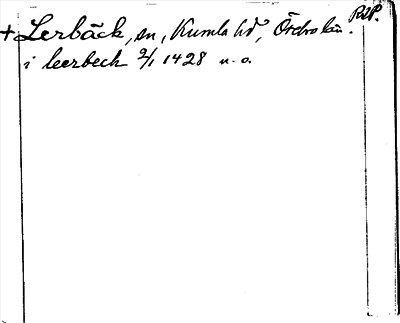 RAP.
+ Lerbäck, sn, Kumla hd, Örebro län.
i leerbech 9/1 1428 u. o.